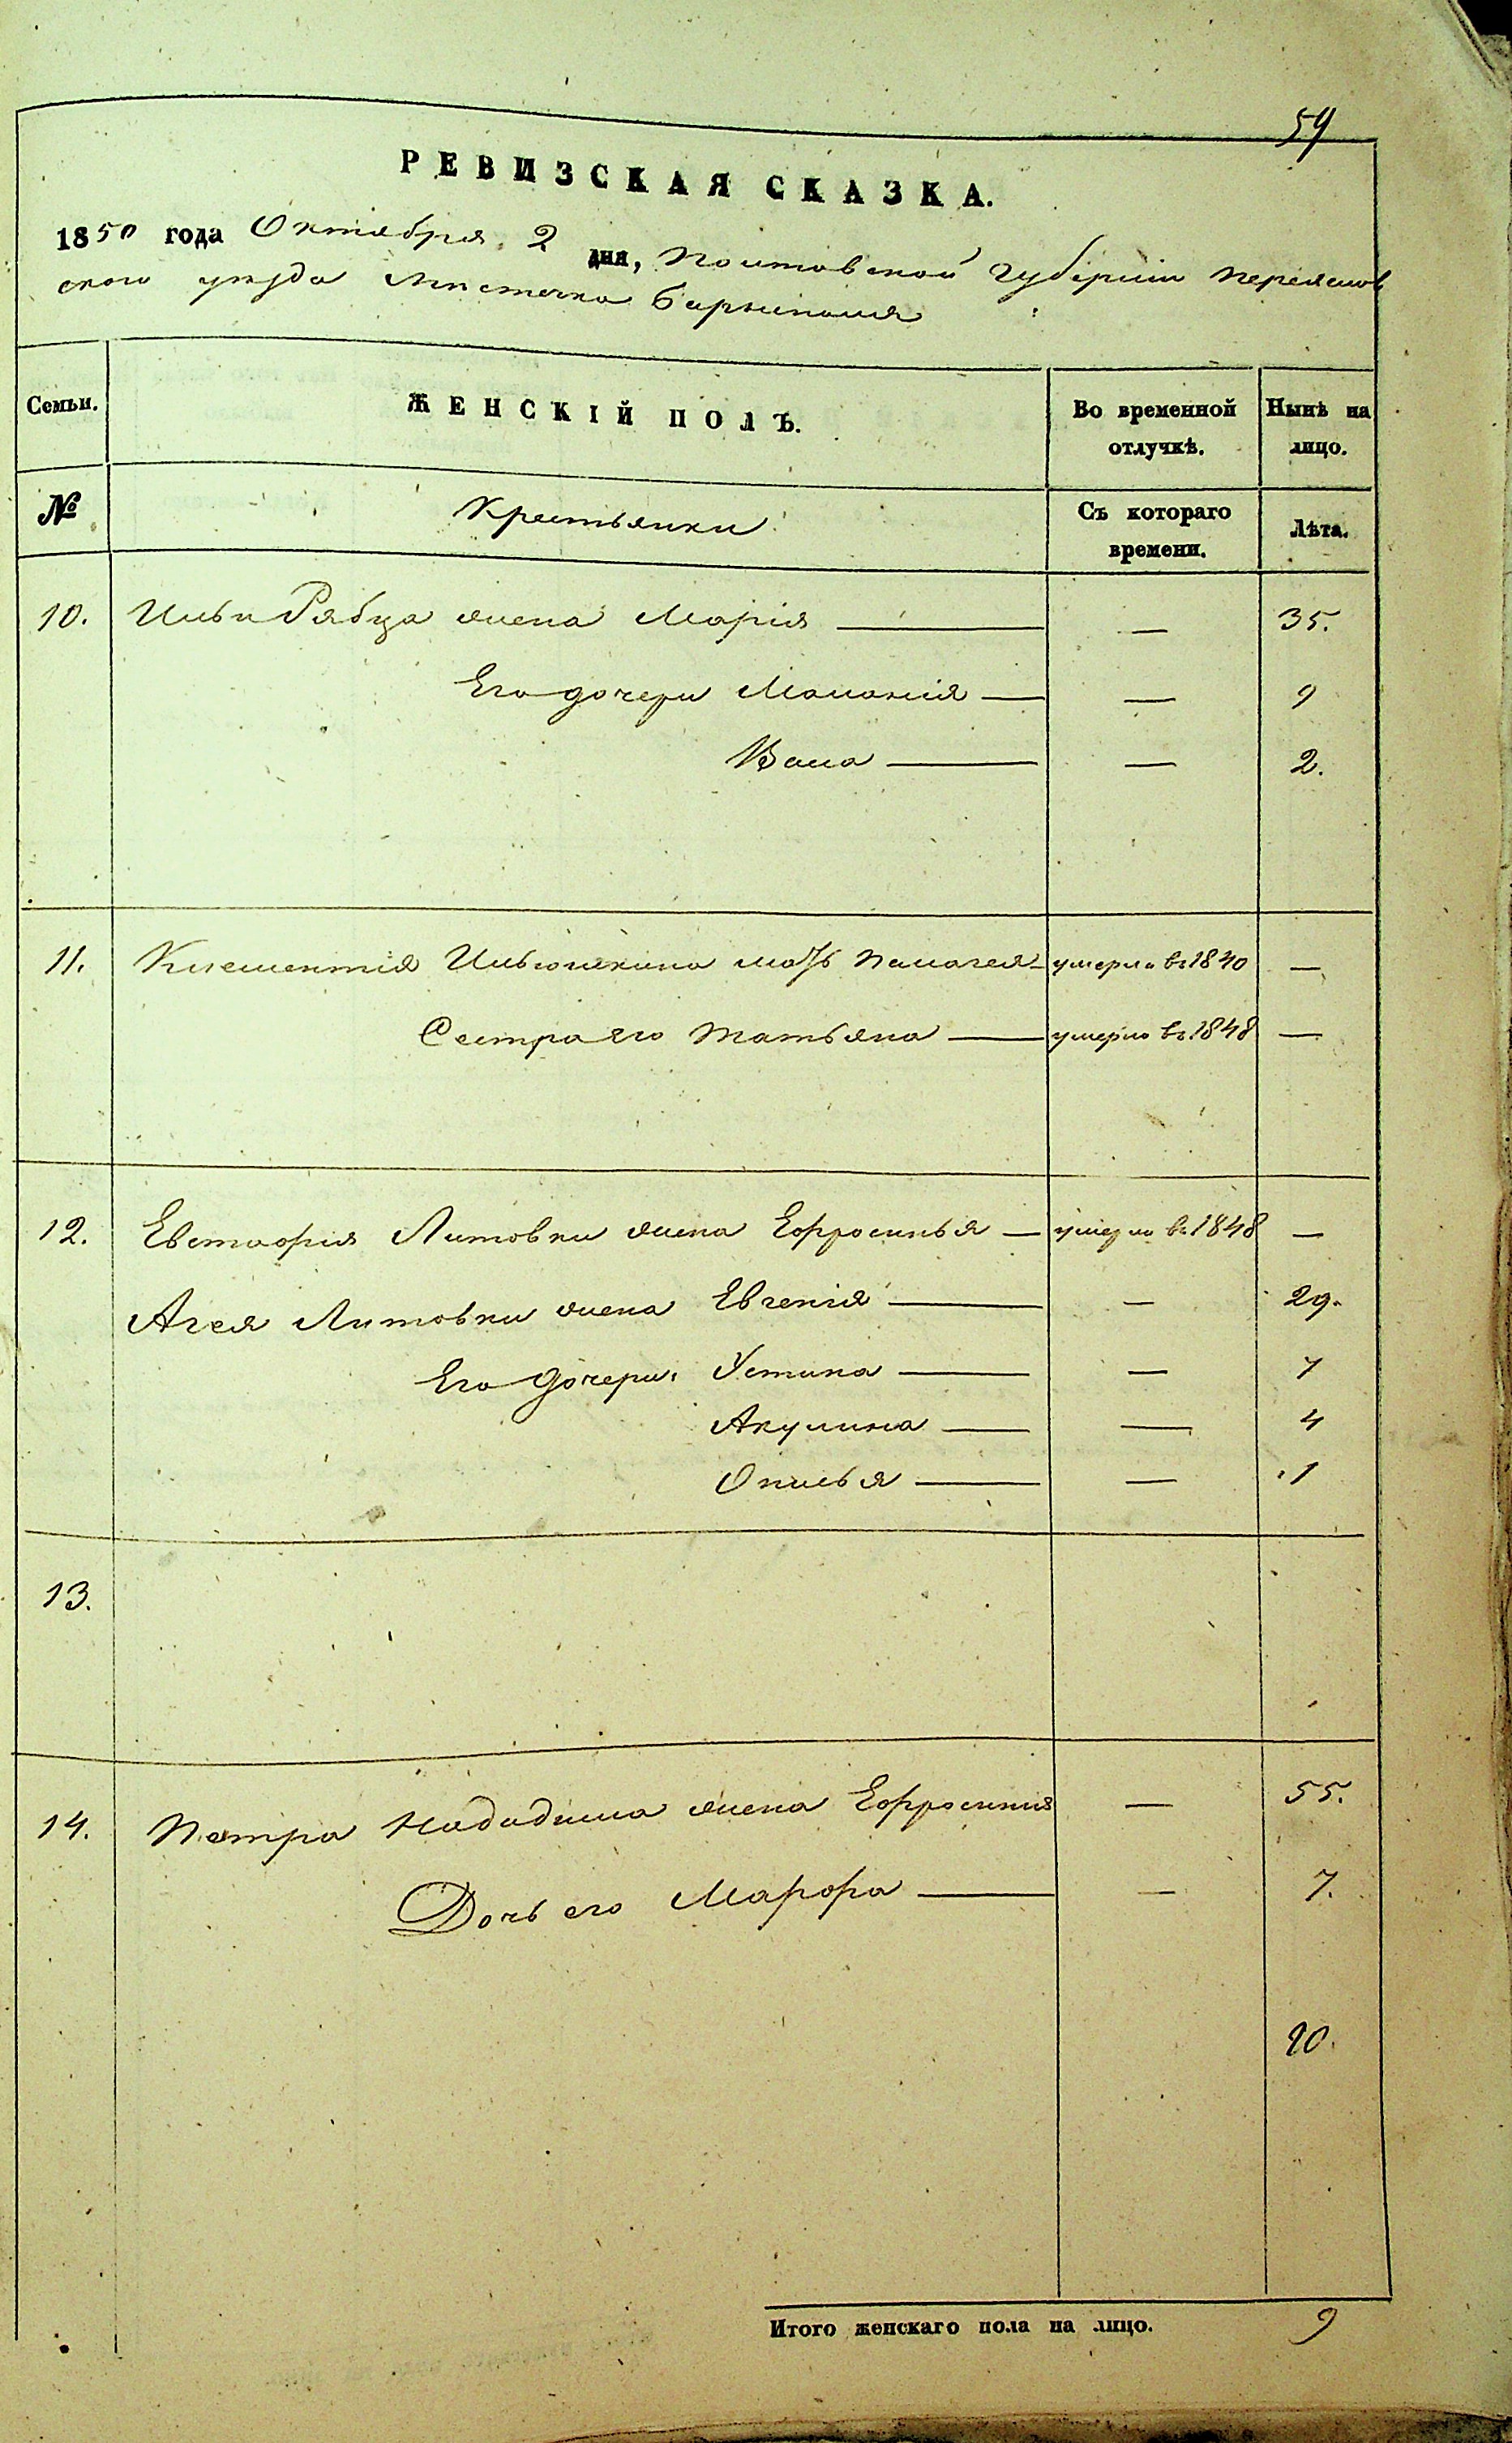 59
РЕВИЗСКАЯ СКАЗКА.
1850 года Октября 2 дня, Полтавской губерніи Переяслов
ского уезда Мистечка Барышполя
Семьи. ЖЕНСКІЙ ПОЛЪ. Во временной отлучкѣ. Нынѣ на лицо.
№ Крестьянки Съ котораго времени. Лѣта.
10. Ильи Рябца жена Марія — — 35.
Его дочери Маланія — — 9
Васа — — 2.
11. Клементія Ильюшкина мать Палагея — умерла въ 1840 —
Сестра его Татьяна — умерла въ 1848 —
12. Евстафія Литовки жена Ефросинья — умерла въ 1848 —
Агея Литовки жена Евгенія — — 29.
Его дочери: Устина — — 7
Акулина — — 4
— — 1
13.
14. Петра жена Ефросинія — 55.
Дочь его Марфа — — 7.
10.
Итого женскаго пола на лицо. 9